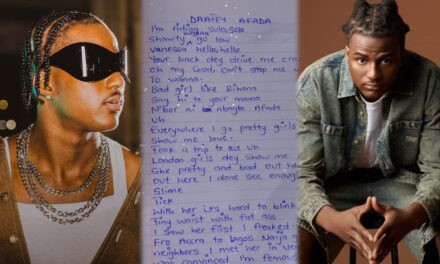 DAATEY AFADA
I'm riding solo, solo
Shawty wanna go low
Vanessa hello, hello
Your back dey drive me cra
oh my God, can't stop me
To wanna
Bad girl like Rihana
Say hi to your mama
N'bor ni nbayta Afada
Uh
Everywhere I go pretty girls
Show me love.
Took a trip to the UK
London girls dey show me
She pretty and bad out he
out here I done see enough
Slime
Tick
With her it's hard to blink
Tiny waist with fat ass
I saw her first I freaked
Fro Accra to Lagos Naija g
neighbors I met her in
was convinced I'm femous